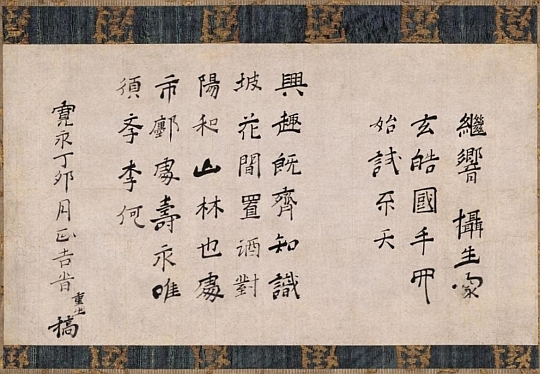 繼響 攝生家
玄皓國手冊
始試示夭
興趣既齊知識
坡花間置酒對
陽和山林也處
市鄽處壽永唯
須季李何
寛永丁卯月正吉旹
稿